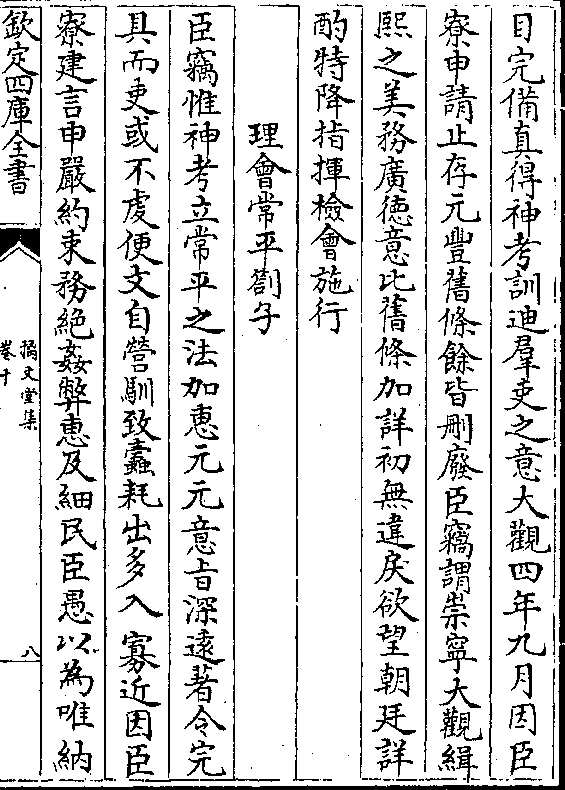 目完備真得神考訓迪羣吏之意大觀四年九月因臣
寮申請止存元豐舊條餘皆刪廢臣竊謂崇寧大觀緝
熙之美務廣德意比舊條加詳初無違戾欲望朝廷詳
酌特降指揮檢會施行
理會常平劄子
臣竊惟神考立常平之法加惠元元意旨深遠著令完
具而吏或不虔便文自營馴致蠧耗出多入寡近因臣
寮建言申嚴約束務絶姦弊惠及細民臣愚以為唯納
欽定四庫全書
摛文堂集
卷十
八